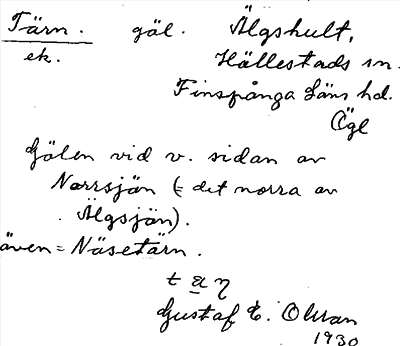 Tärn. göl. Älgshult,
ek. Hällestads sn.
Finspånga läns hd.
Ögl
Gölen vid v. sidan av
Norrsjön (= det norra av
Älgsjön).
även = Näsetärn.
t a η
Gustaf E. Ohran
1930